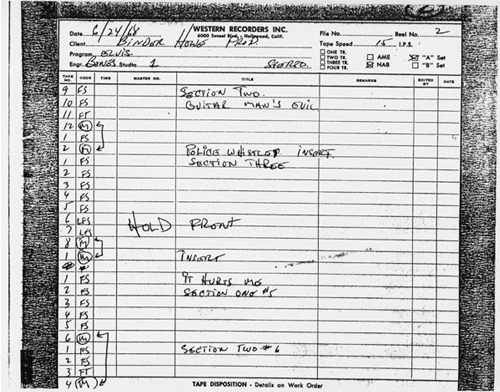 2
WESTERN RECORDERS INC.
6000 Sunset Blvd., Hollywood, Calif.
Date 6/24/68 File No. Reel No. 2
Client BINDER HOWE PROD. Tape Speed 15 I.P.S.
Program ELVIS
Engr. BONES Studio 1 STEREO
ONE TR.
TWO TR. AME "A" Set
THREE TR. NAB "B" Set
FOUR TR.
TAKE NO. CODE TIME MASTER NO. TITLE REMARKS EDITED BY DATE
9 FS SECTION TWO
10 FS GUITAR MAN'S EVIL
11 FT
12 M
1 FS
2 M POLICE WHISTLE INSERT
1 FS SECTION THREE
2 FS
3 FS
4 FS
5 FS
6 LFS HOLD FRONT
7 LFS
8 M
1 M INSERT
1 FS IT HURTS ME
2 FS SECTION ONE #5
3 FS
4 FS
5 FS
6 M
1 FS SECTION TWO #6
2 FS
3 FT
4 M
TAPE DISPOSITION - Details on Work Order